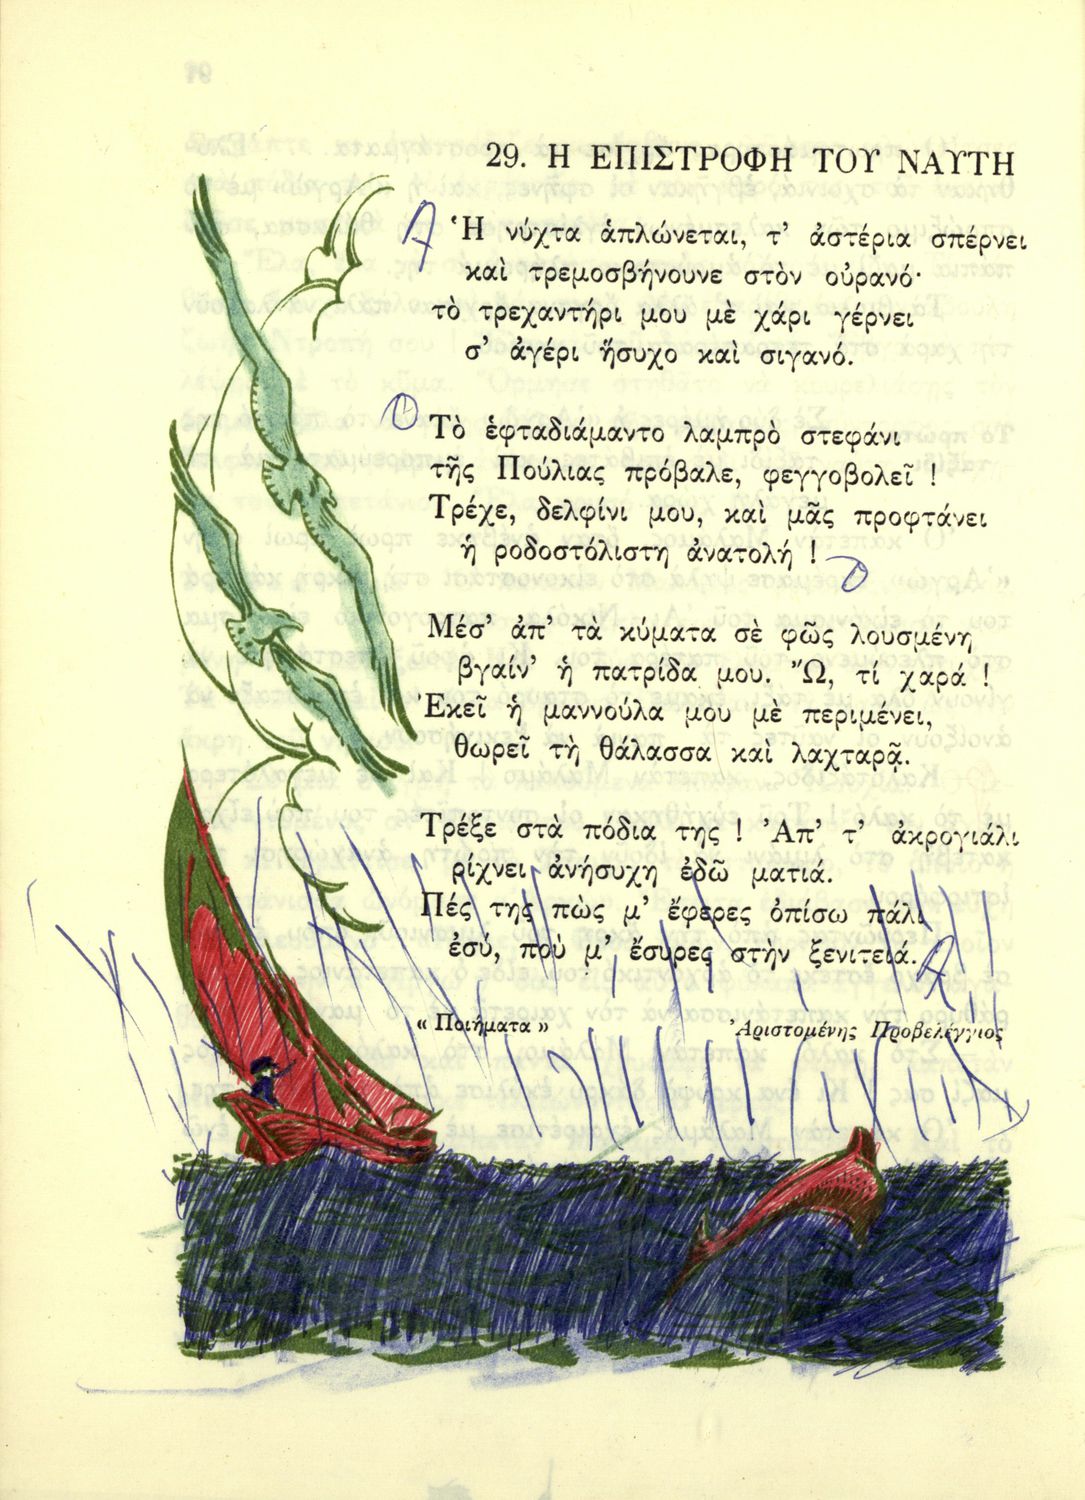 29. Η ΕΠΙΣΤΡΟΦΗ ΤΟΥ ΝΑΥΤΗ
Ἡ νύχτα ἁπλώνεται, τ' ἀστέρια σπέρνει
καὶ τρεμοσβήνουνε στὸν οὐρανό·
τὸ τρεχαντήρι μου μὲ χάρι γέρνει
σ' ἀγέρι ἥσυχο καὶ σιγανό.
Τὸ ἑφταδιάμαντο λαμπρὸ στεφάνι
τῆς Πούλιας πρόβαλε, φεγγοβολεῖ !
Τρέχε, δελφίνι μου, καὶ μᾶς προφτάνει
ἡ ροδοστόλιστη ἀνατολή !
Μέσ' ἀπ' τὰ κύματα σὲ φῶς λουσμένη
βγαίν' ἡ πατρίδα μου. Ὤ, τί χαρά !
Ἐκεῖ ἡ μαννούλα μου μὲ περιμένει,
θωρεῖ τὴ θάλασσα καὶ λαχταρᾷ.
Τρέξε στὰ πόδια της ! Ἀπ' τ' ἀκρογιάλι
ρίχνει ἀνήσυχη ἐδῶ ματιά.
Πές της πὼς μ' ἔφερες ὀπίσω πάλι
ἐσύ, ποὺ μ' ἔσυρες στὴν ξενιτειά.
« Ποιήματα » Ἀριστομένης Προβελέγγιος